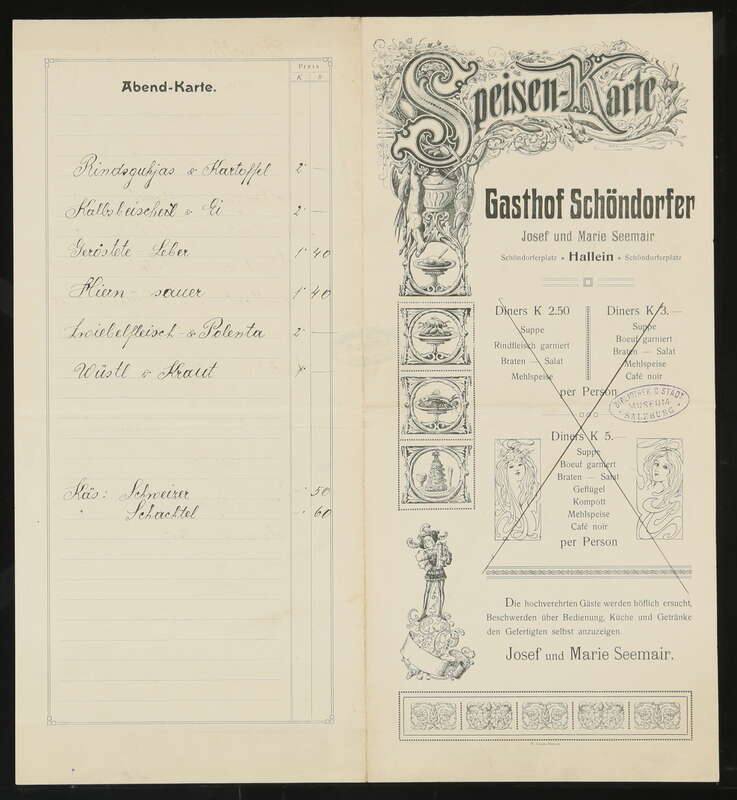 Abend-Karte.
Preis
K h
Rindsgulyas & Kartoffel 2 —
Kalbsbeischerl & Ei 2 —
Geröstete Leber 1 40
Hiern sauer 1 40
Zwiebelfleisch & Polenta 2 —
Würstl & Kraut —
Käs: Schweizer - 50
" Schachtel - 60
Speisen-Karte
Gasthof Schöndorfer
Josef und Marie Seemair
Schöndorferplatz • Hallein • Schöndorferplatz
Diners K 2.50
Suppe
Rindfleisch garniert
Braten — Salat
Mehlspeise
Diners K 3.—
Suppe
Boeuf garniert
Braten — Salat
Mehlspeise
Café noir
per Person
BIBLIOTHEK D. STÄDT.
MUSEUM
SALZBURG
Diners K 5.—
Suppe
Boeuf garniert
Braten — Salat
Geflügel
Kompott
Mehlspeise
Café noir
per Person
Die hochverehrten Gäste werden höflich ersucht,
Beschwerden über Bedienung, Küche und Getränke
den Gefertigten selbst anzuzeigen.
Josef und Marie Seemair.